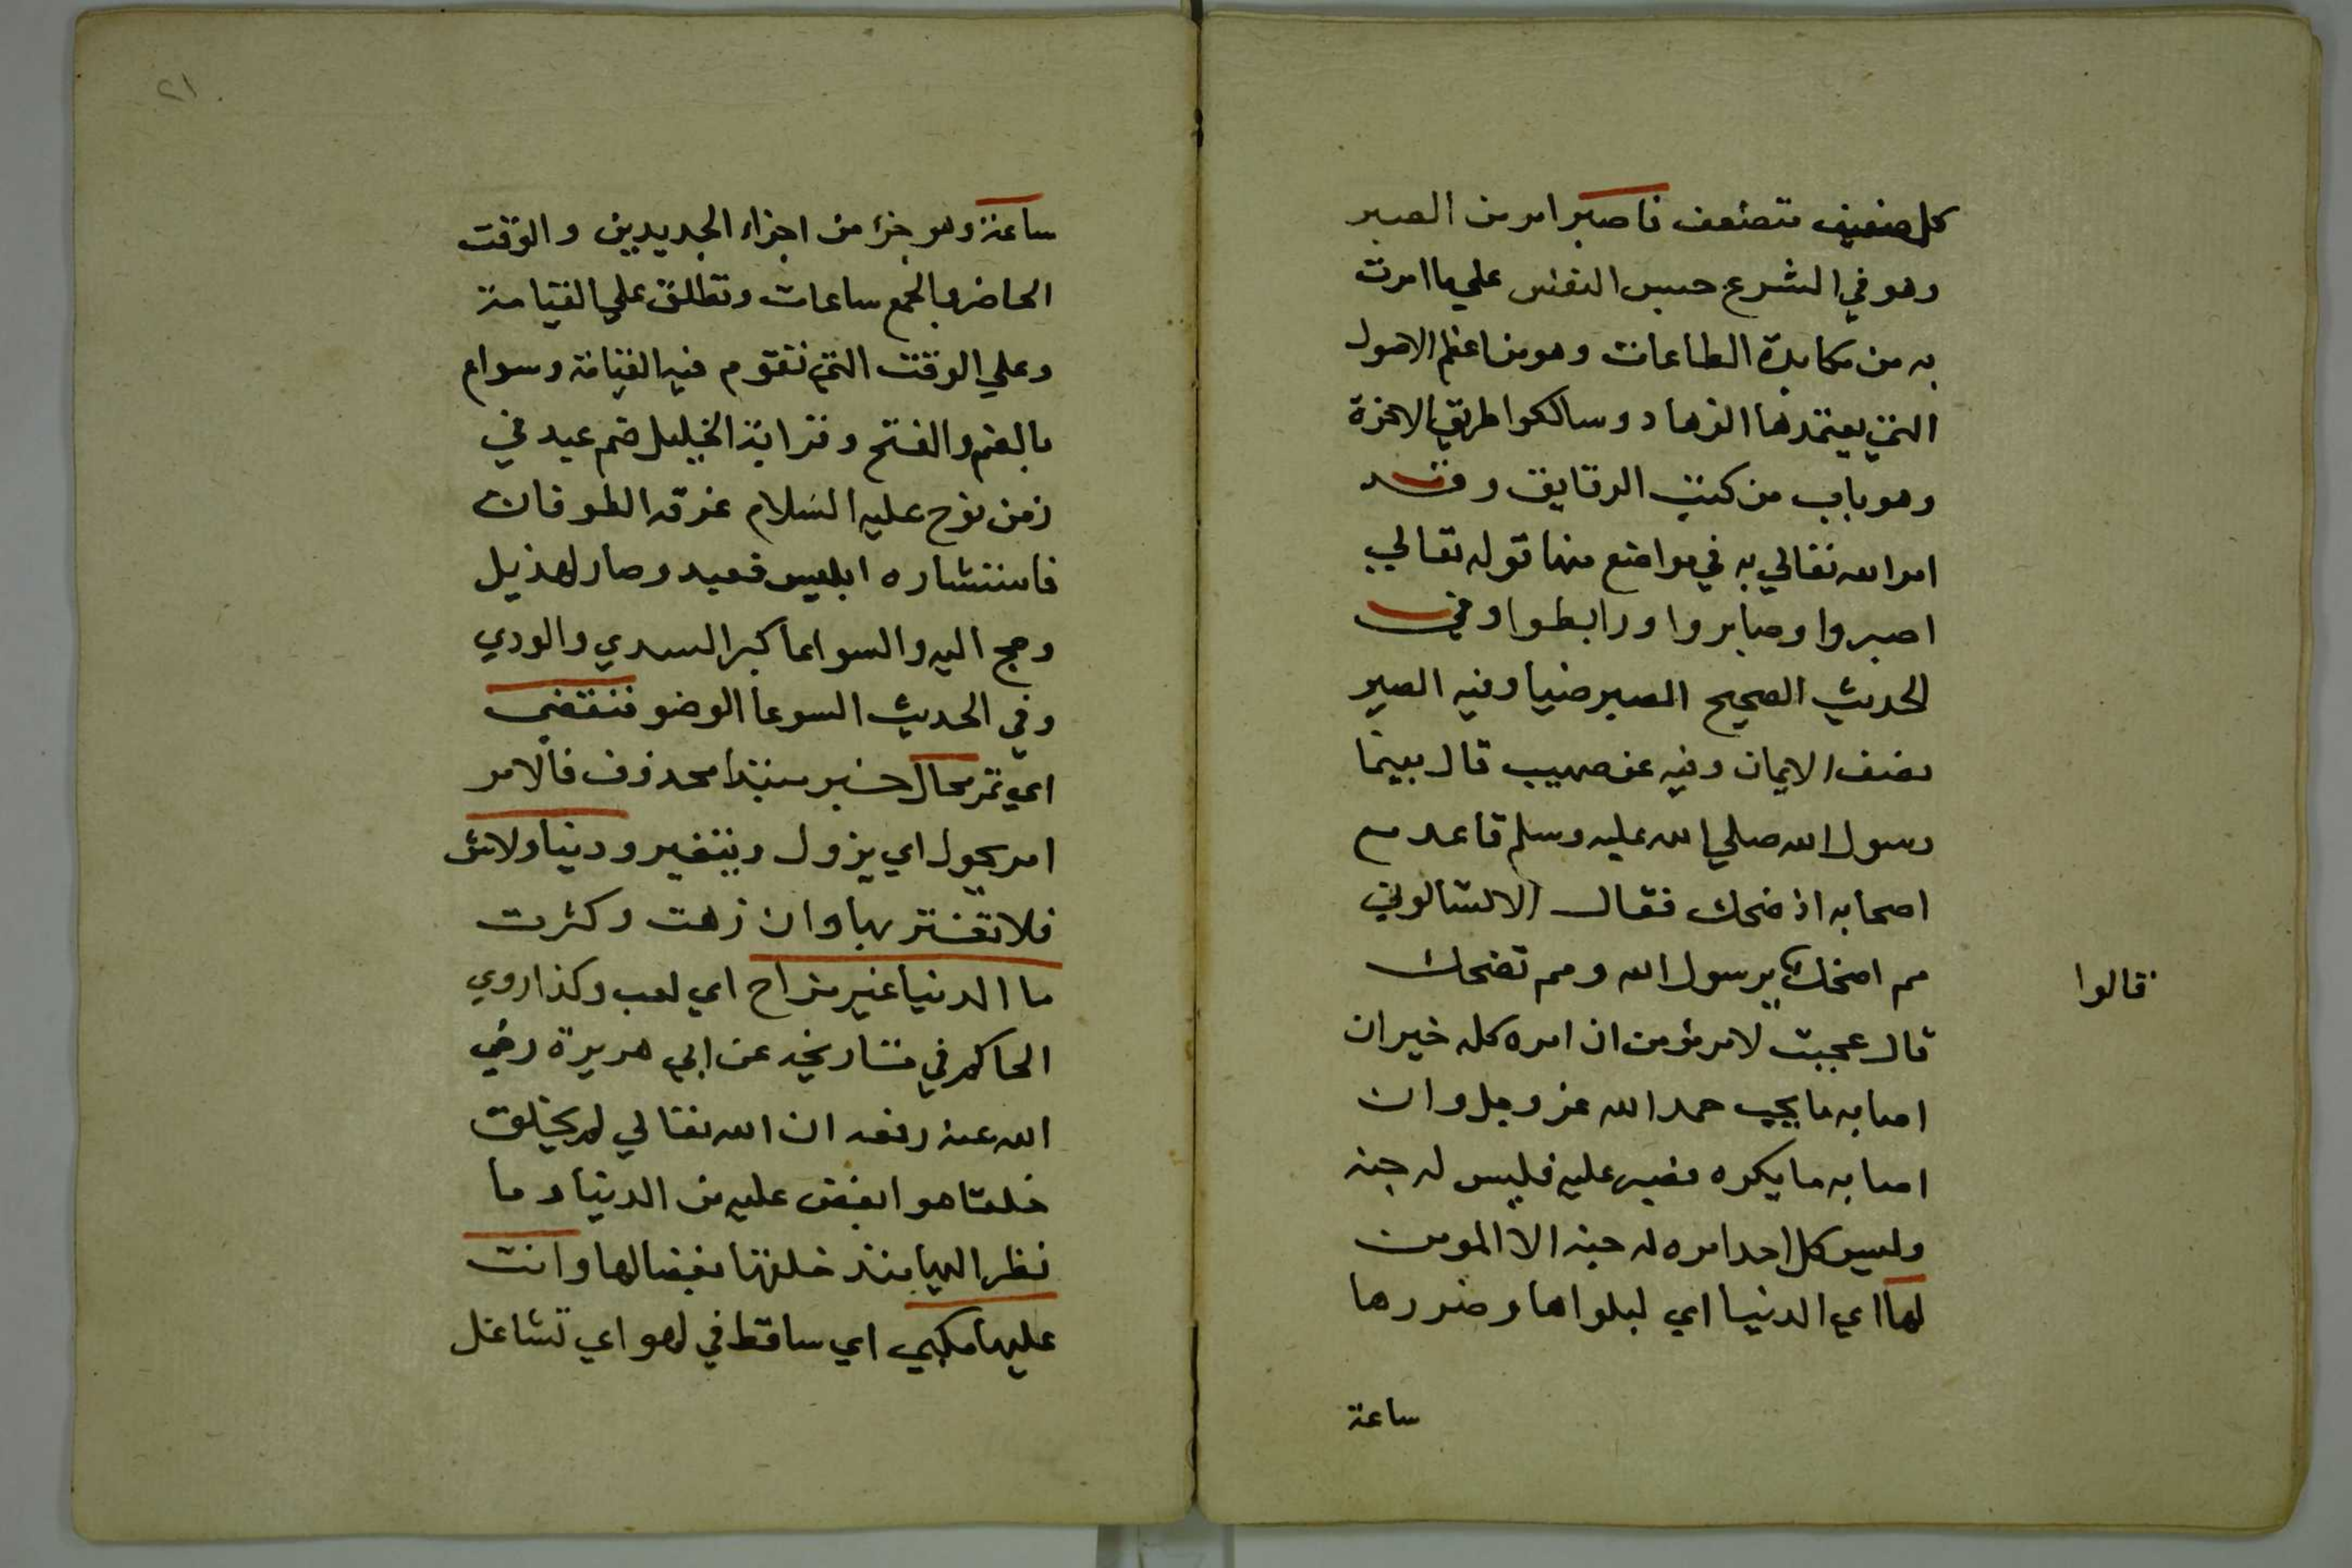 كل ضعيف متضعف فاصبر امر من الصبر
وهو في الشرع حبس النفس علي ما امرت
به من مكابدة الطاعات وهو من اعظم الاصول
التي يعتمدها الزهاد وسالكوا طريق الاخرة
وهو باب من كتب الرقايق وقد
امر الله تعالي به في مواضع منها قوله تعالي
اصبروا وصابروا ورابطوا وفي
الحديث الصحيح الصبر ضيا وفيه الصبر
نصف الايمان وفيه عن صهيب قال بينما
رسول الله صلي الله عليه وسلم قاعد مع
اصحابه اذ ضحك فقال الا تسالوني
مم اضحك يرسول الله ومم تضحك
قالوا
قال عجبت لامر مؤمن ان امره كله خير ان
اصابه ما يحب حمد الله عز وجل وان
اصابه ما يكره فصبر عليه فليس له جنه
وليس كل احد امره له جنه الا المومن
لها اي الدنيا اي لبلواها وضررها
ساعة
٢١
ساعة وهو جزء من اجزاء الجديدين والوقت
الحاضر والجمع ساعات وتطلق علي القيامة
وعلي الوقت التي تقوم فيه القيامة وسواع
بالضم والفتح وقراية الخليل صنم عبد في
زمن نوح عليه السلام غرقه الطوفان
فاستثاره ابليس فعبد وصار لهذيل
وحج اليه والسواعا كبرا السدي والودي
وفي الحديث السوعا الوضو فتقضي
اي تمر محال خبر مبتدا محذوف فالامر
امر يحول اي يزول ويتغير ودنيا ولاش
فلا تغتر بها وان زهت وكثرت
ما الدنيا غير مزاح اي لعب وكذا روي
الحاكم في تاريخه عن ابي هريرة رضي
الله عنه رفعه ان الله تعالي لم يخلق
خلقا هو ابغض عليه من الدنيا وما
نظر اليها منذ خلقها بغضا لها وانت
عليها مكبي اي ساقط في لهو اي تشاغل